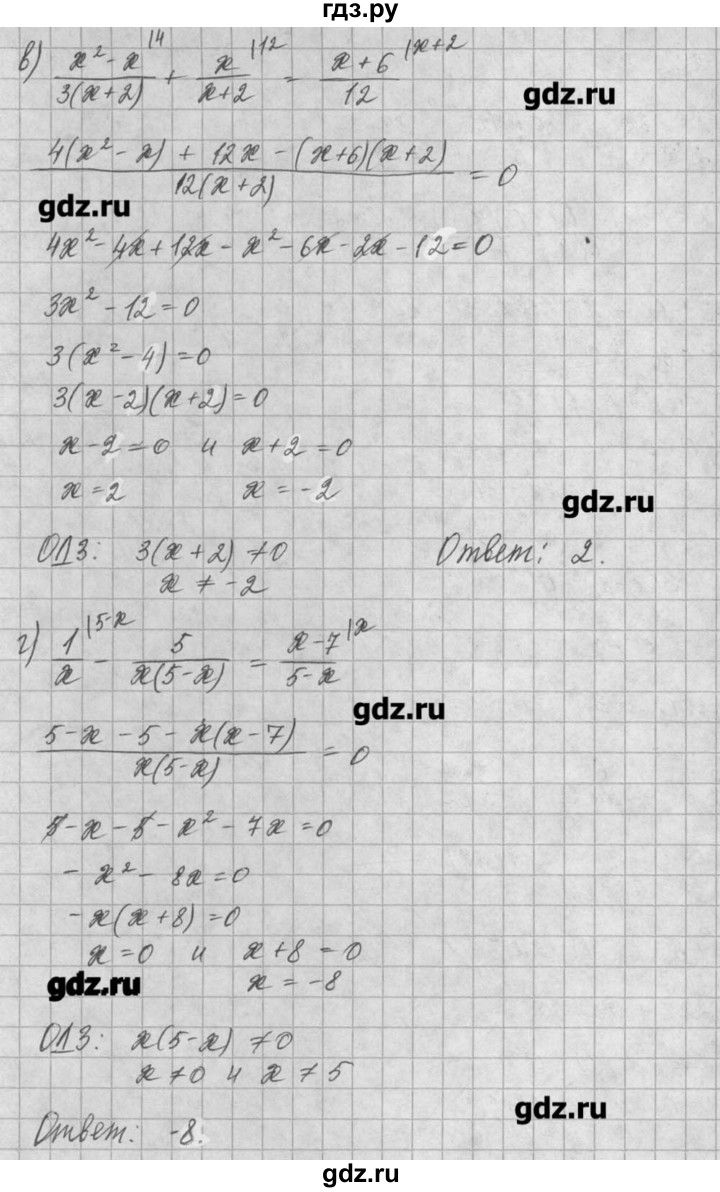 гдз.ру
в) (x² - x)/(3(x+2)) |4 + x/(x+2) |12 = (x+6)/12 |x+2
gdz.ru
(4(x² - x) + 12x - (x+6)(x+2))/(12(x+2)) = 0
gdz.ru
4x² - 4x + 12x - x² - 6x - 2x - 12 = 0
3x² - 12 = 0
3(x² - 4) = 0
3(x - 2)(x + 2) = 0
x - 2 = 0 и x + 2 = 0
x = 2 x = -2
gdz.ru
ОДЗ: 3(x + 2) ≠ 0 Ответ: 2.
x ≠ -2
г) 1/x |5-x - 5/(x(5-x)) = (x-7)/(5-x) |x
gdz.ru
(5 - x - 5 - x(x - 7))/(x(5-x)) = 0
5 - x - 5 - x² - 7x = 0
- x² - 8x = 0
- x(x + 8) = 0
x = 0 и x + 8 = 0
gdz.ru x = -8
ОДЗ: x(5-x) ≠ 0
x ≠ 0 и x ≠ 5
gdz.ru
Ответ: -8.
gdz.ru